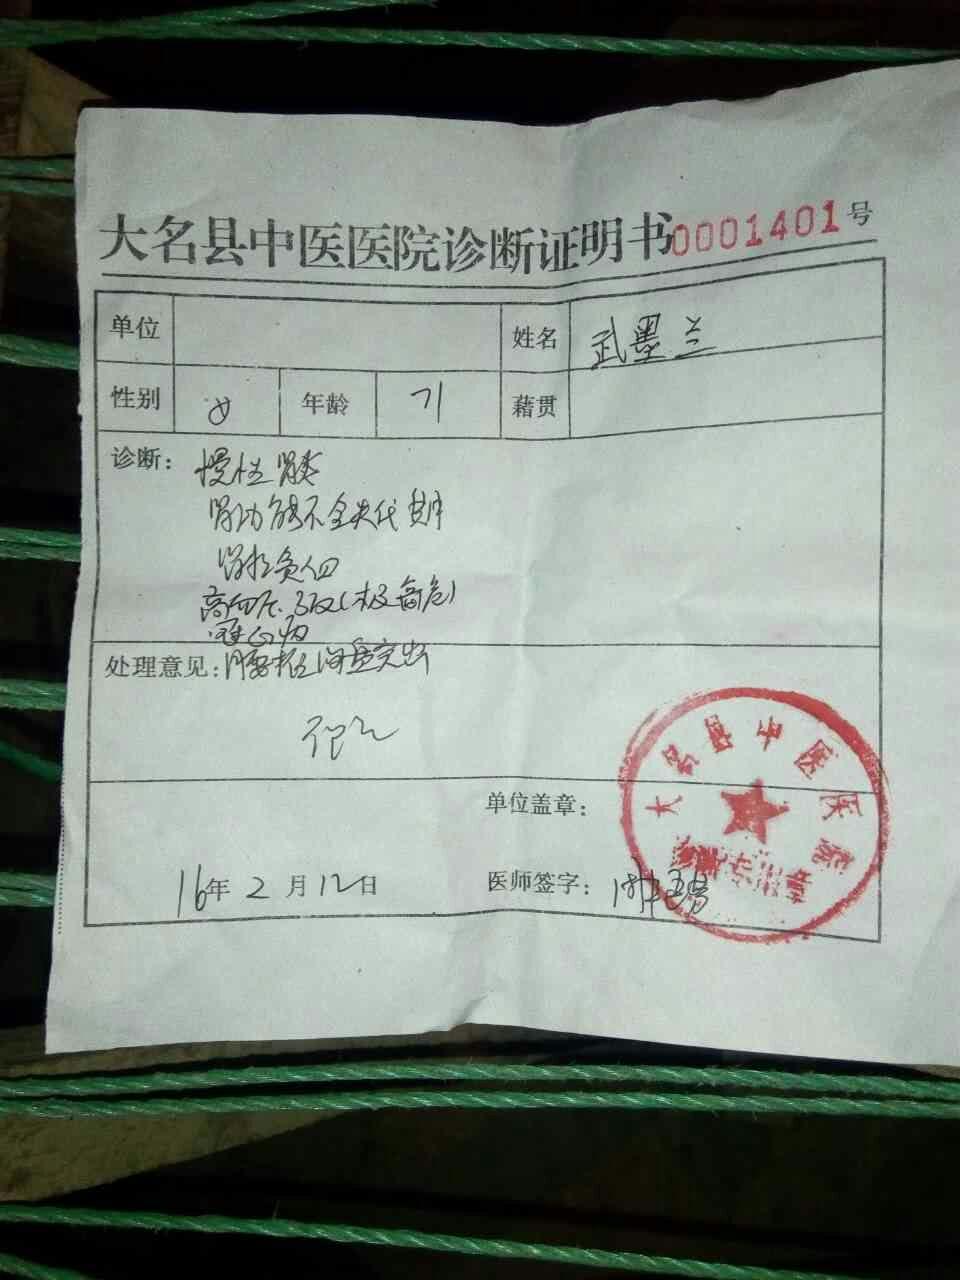 大名县中医医院诊断证明书0001401号
单位 姓名 武墨兰
性别 女 年龄 71 藉贯
诊断：慢性肾炎
肾功能不全失代偿期
高血压3级(极高危)
冠心病
处理意见：腰椎间盘突出
单位盖章：
大名县中医医院
16年2月12日 医师签字：